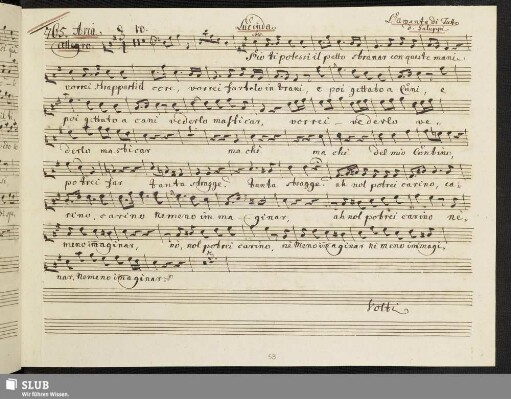 765. Aria. Lucinda. L'Amante di Tutto
Allegro. di Galuppi
S'io ti potessi il petto sbranar con queste mani
vorrei strapparti il core, vorrei fartelo in brani, e poi gettarlo a Cani, e
poi gettarlo a cani vederlo masticar, vorrei vederlo ve
derlo masticar ma chi ma chi del mio
potrei far tanta stragge. tanta stragge. ah nol potrei carino, ca
rino, carino nemeno in ma ginar, ah nol potrei carino ne
meno imaginar, nò, nol potrei carino, ne meno imaginar ni meno in imagi
nar, nemeno imaginar.
Volti
53
SLUB
Wir führen Wissen.